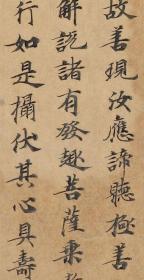 故善現汝應諦聽極善
解説諸有發趣菩薩乘
行如是攝伏其心具壽